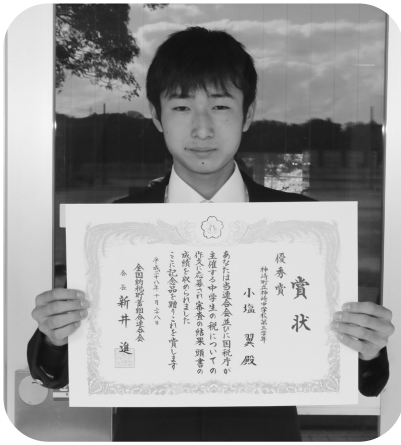 賞状
優秀賞
神崎町立神崎中学校第三学年
小塩 翼 殿
あなたは当連合会並びに国税庁が
主催する中学生の税についての
作文に応募され審査の結果頭書の
成績を収められました
ここに記念品を贈りこれを賞します
平成二十八年十月二十八日
全国納税貯蓄組合連合会
会長 新井 進